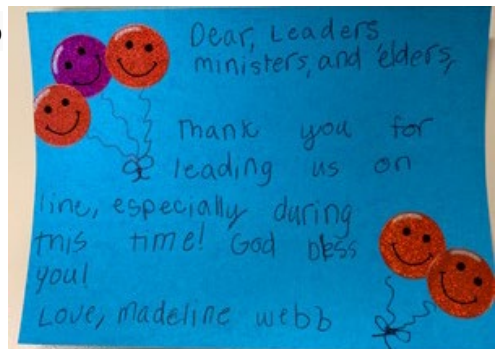 Dear, Leaders
ministers, and elders,
Thank you for
leading us on
line, especially during
this time! God bless
you!
Love, madeline webb